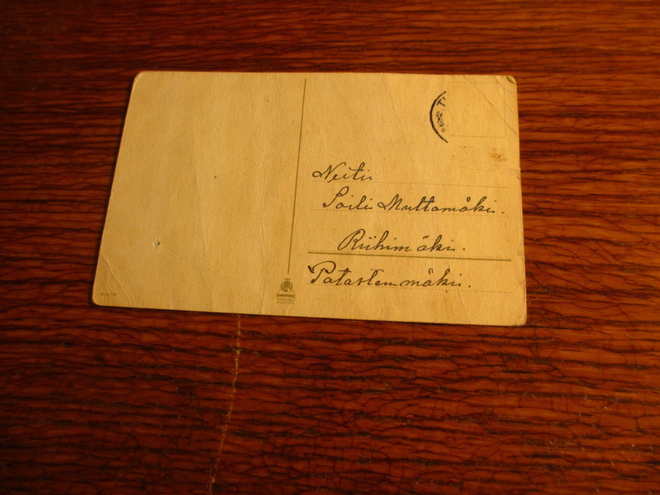 Neiti
Soili Multamäki.
Riihimäki.
Patastenmäki.